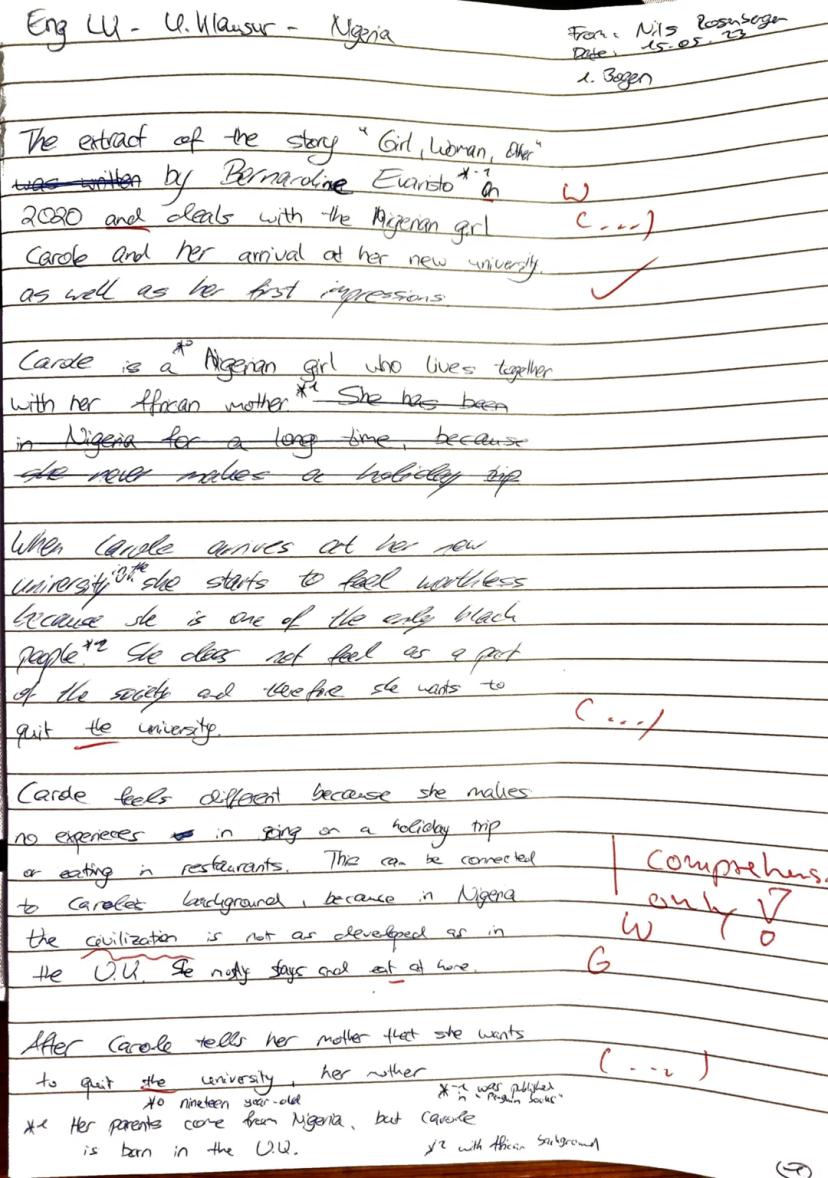 Eng LU - U. Mansur - Nigeria
From: Nils Rosenberger
Date: 15.05.23
1. Bogen
The extract of the story "Girl, Woman, Other"
was written by Bernardine Evaristo *-1 in W
2020 and deals with the Nigerian girl (...)
Carole and her arrival at her new university
as well as her first impressions. ✓
Carole is a *0 Nigerian girl who lives together
with her African mother. *1 She has been
in Nigeria for a long time, because
she never makes a holiday trip
When Carole arrives at her new
university she starts to feel worthless
because she is one of the only black
people *2. She does not feel as a part
of the society and therefore she wants to
quit the university. (...)
Carole feels different because she makes
no experieces in going on a holiday trip
or eating in restaurants. This can be connected comprehens.
to Caroles background, because in Nigeria only!
the civilization is not as developed as in W
the U.K. She mostly stays and eat at home. G
After Carole tells her mother that she wants
to quit the university, her mother (...)
*0 nineteen year-old
*-1 was published
in "Penguin books"
*1 Her parents come from Nigeria, but Carole
is born in the U.K.
*2 with African background